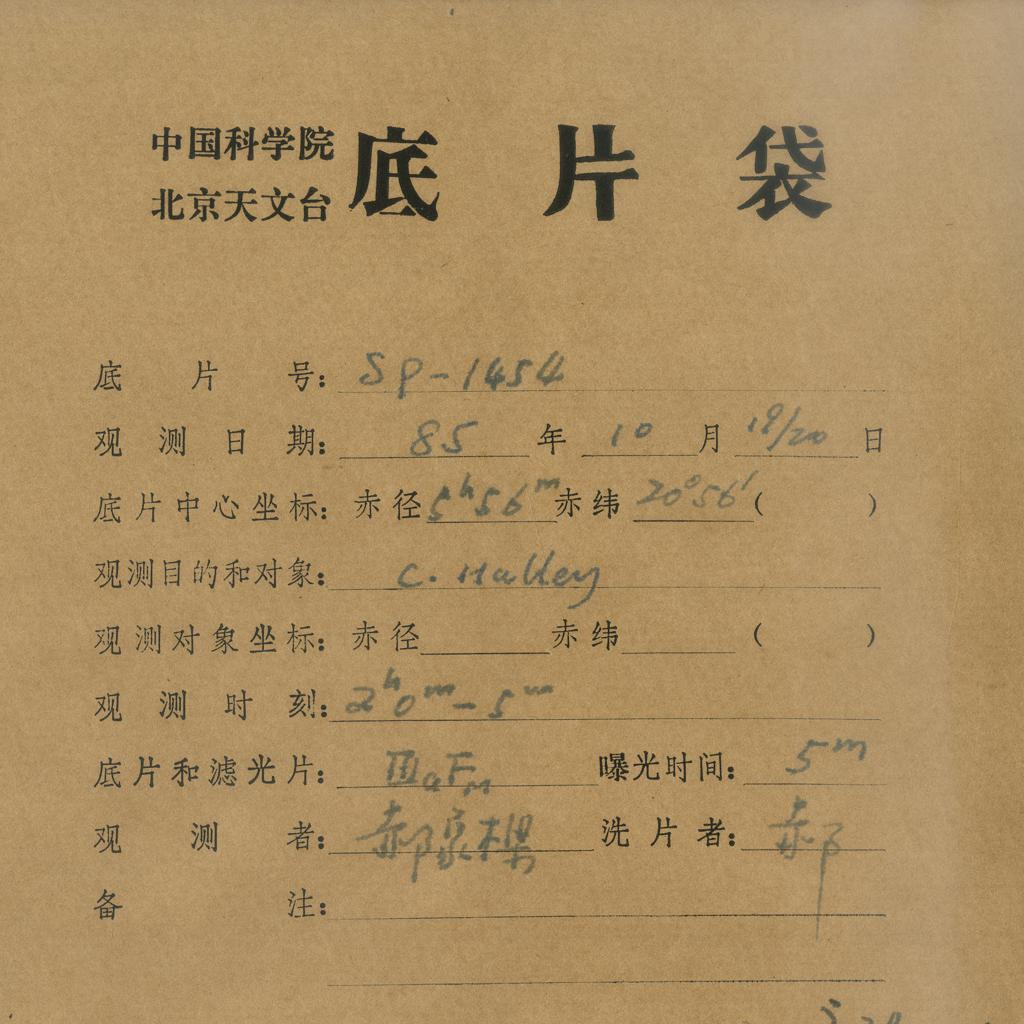 中国科学院
北京天文台
底片袋
底片号: SP-1454
观测日期: 85 年 10 月 19/20 日
底片中心坐标: 赤径 5h56m 赤纬 20°56′ ( )
观测目的和对象: C. Halley
观测对象坐标: 赤径 赤纬 ( )
观测时刻: 2h0m-5m
底片和滤光片: IIIaF 曝光时间: 5m
观测者: 郝 洗片者: 郝
备注: